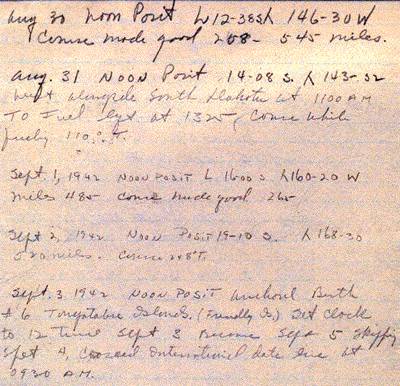 Aug 30 Noon Posit L12-38S λ 146-30W
Course made good 258- 545 miles.
Aug. 31 NOON Posit. 14-08 S. λ 143-52
Went alongside South Dakota at 1100 AM
To Fuel at 1325, Course while
fueling 110° T.
Sept. 1, 1942 NOON POSIT L 1600 S λ160-20 W
miles 485 course made good 265
Sept 2, 1942 Noon POSIT 19-10 S. λ 168-30
520 miles. Course 248°T.
Sept. 3. 1942 NOON POSIT Anchored Berth
#6 Tongatabu Islands. (Friendly Is.) Set Clock
to 12 time Sept 3 Become Sept 5 Skipping
Sept 4, Crossed International date line at
0930 AM.